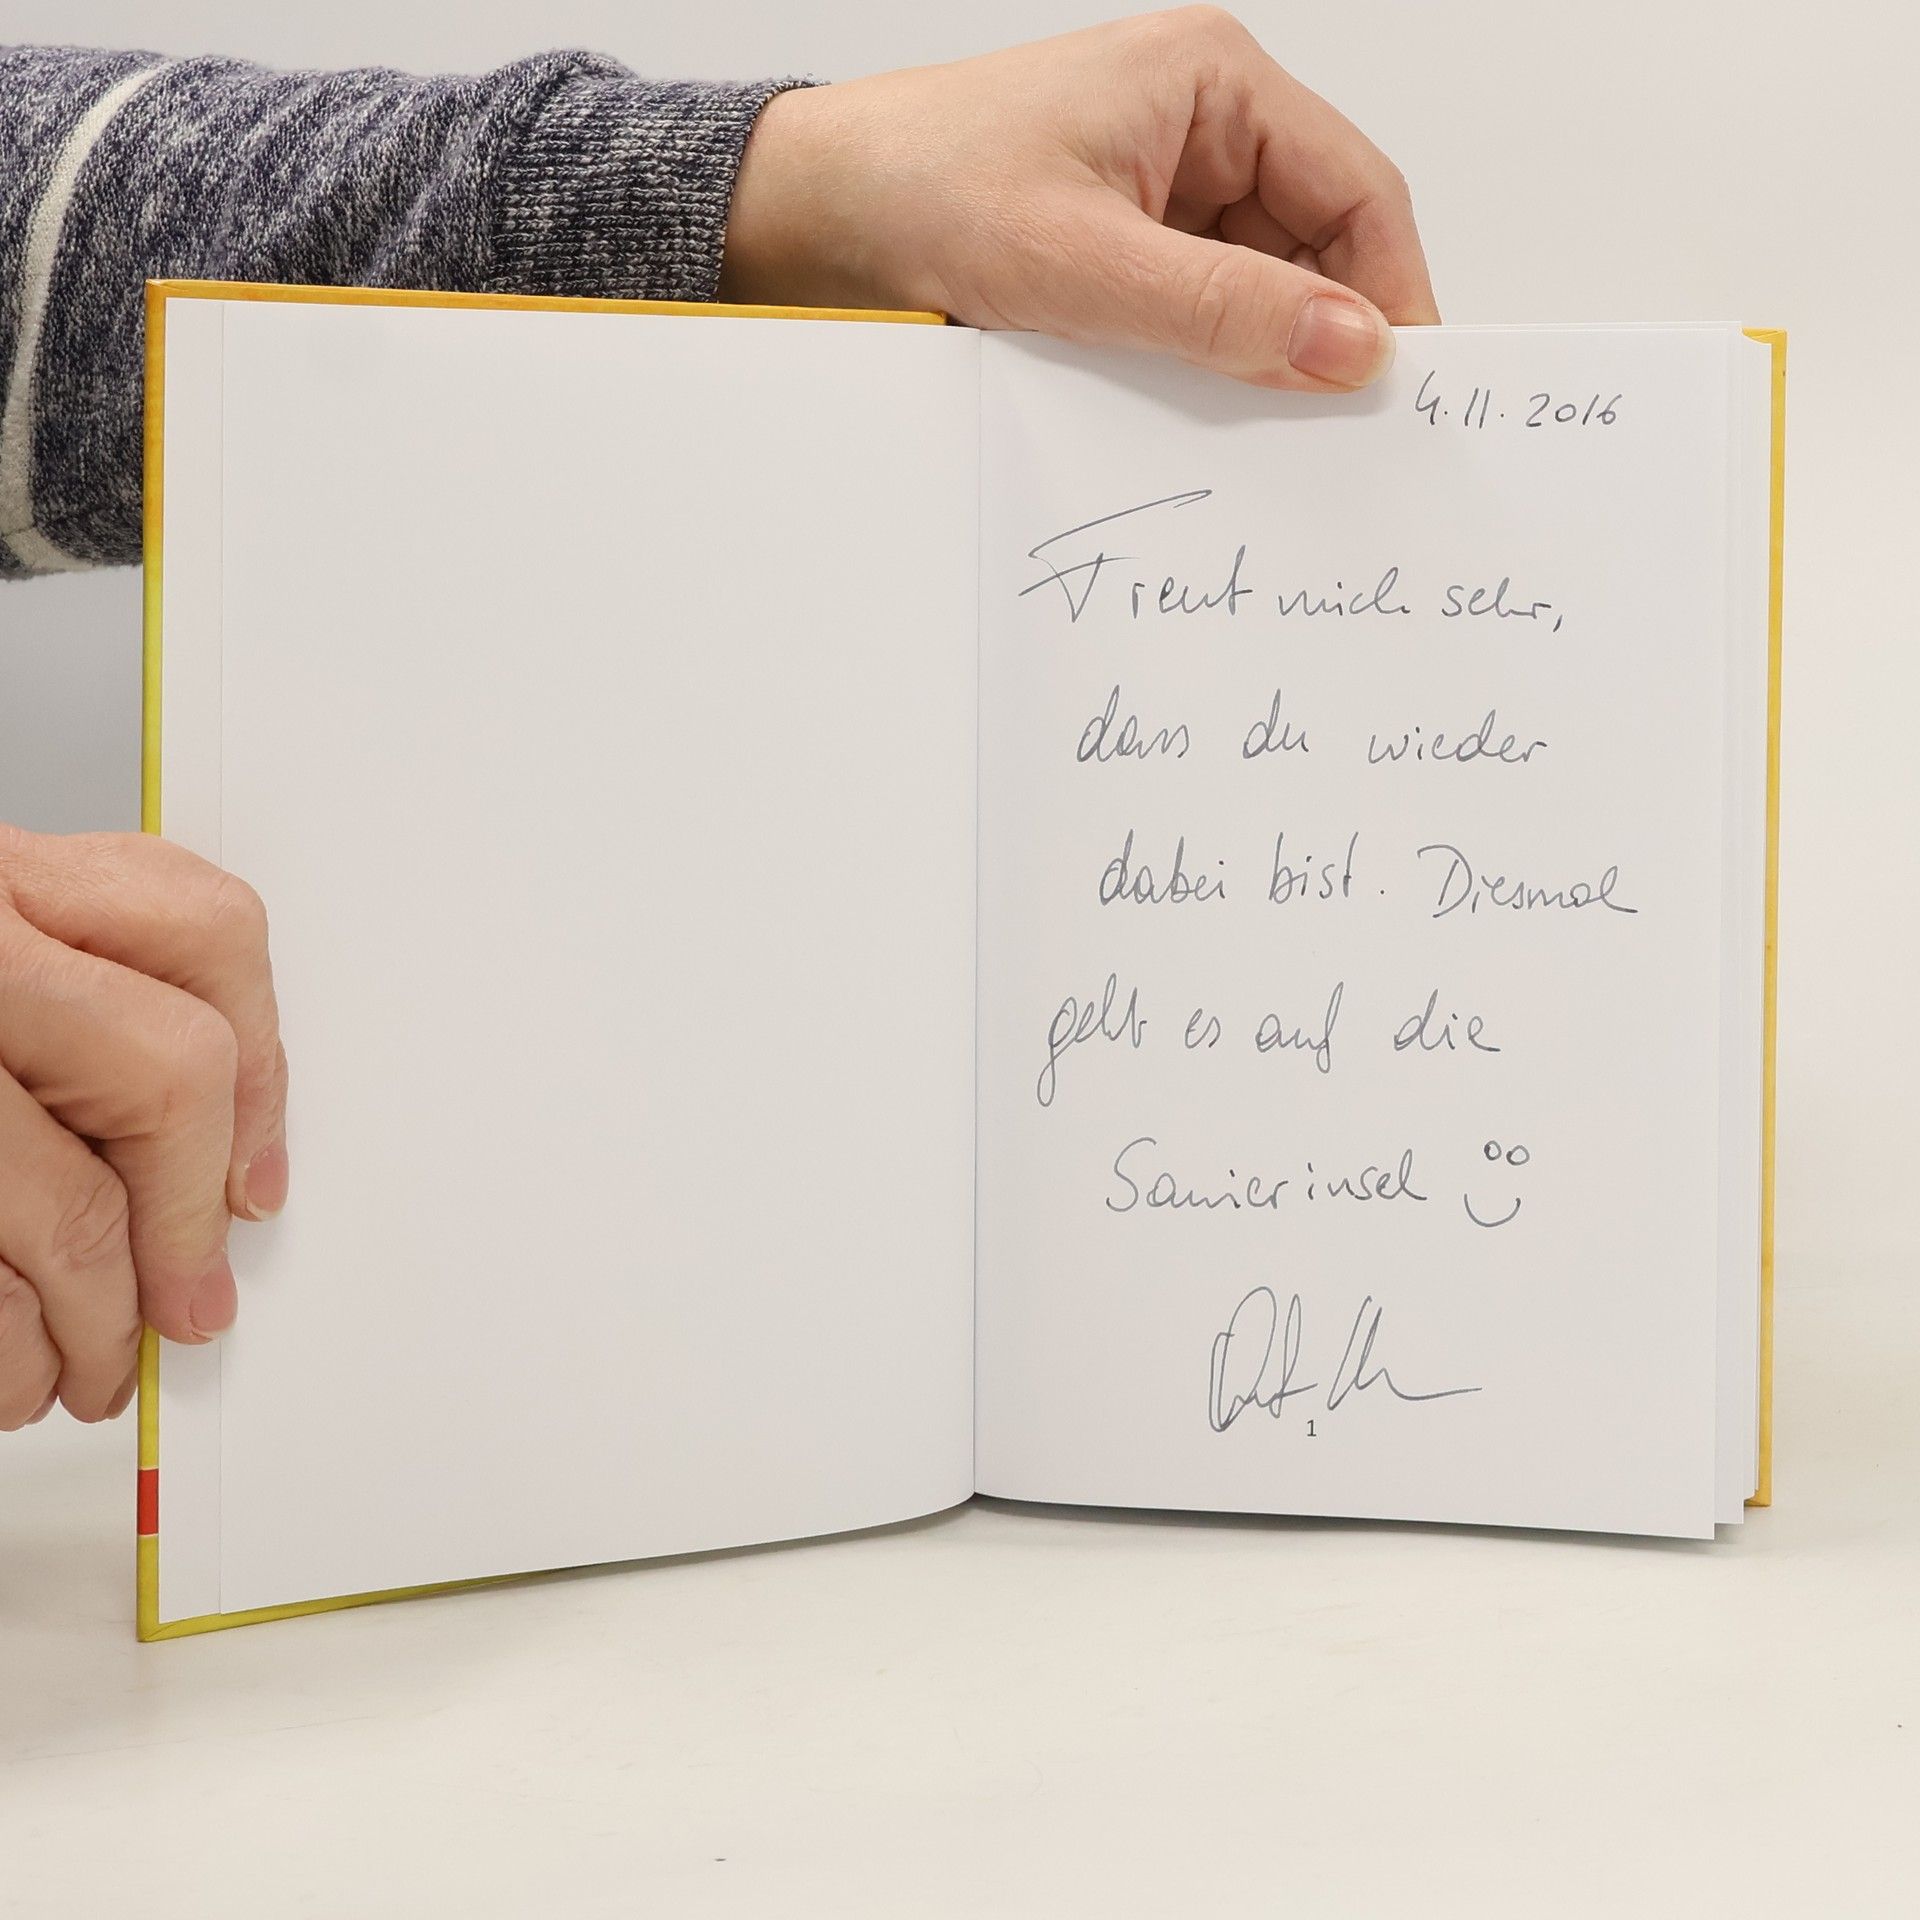 4.11.2016
Freut mich sehr,
dass du wieder
dabei bist. Diesmal
geht es auf die
Sanierinsel
1